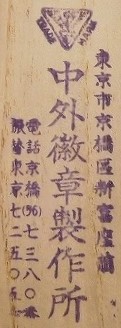 TRADE MARK
東京市京橋區新富座前
中外徽章製作所
電話京橋(56)七三八〇番
振替東京七二五〇五番